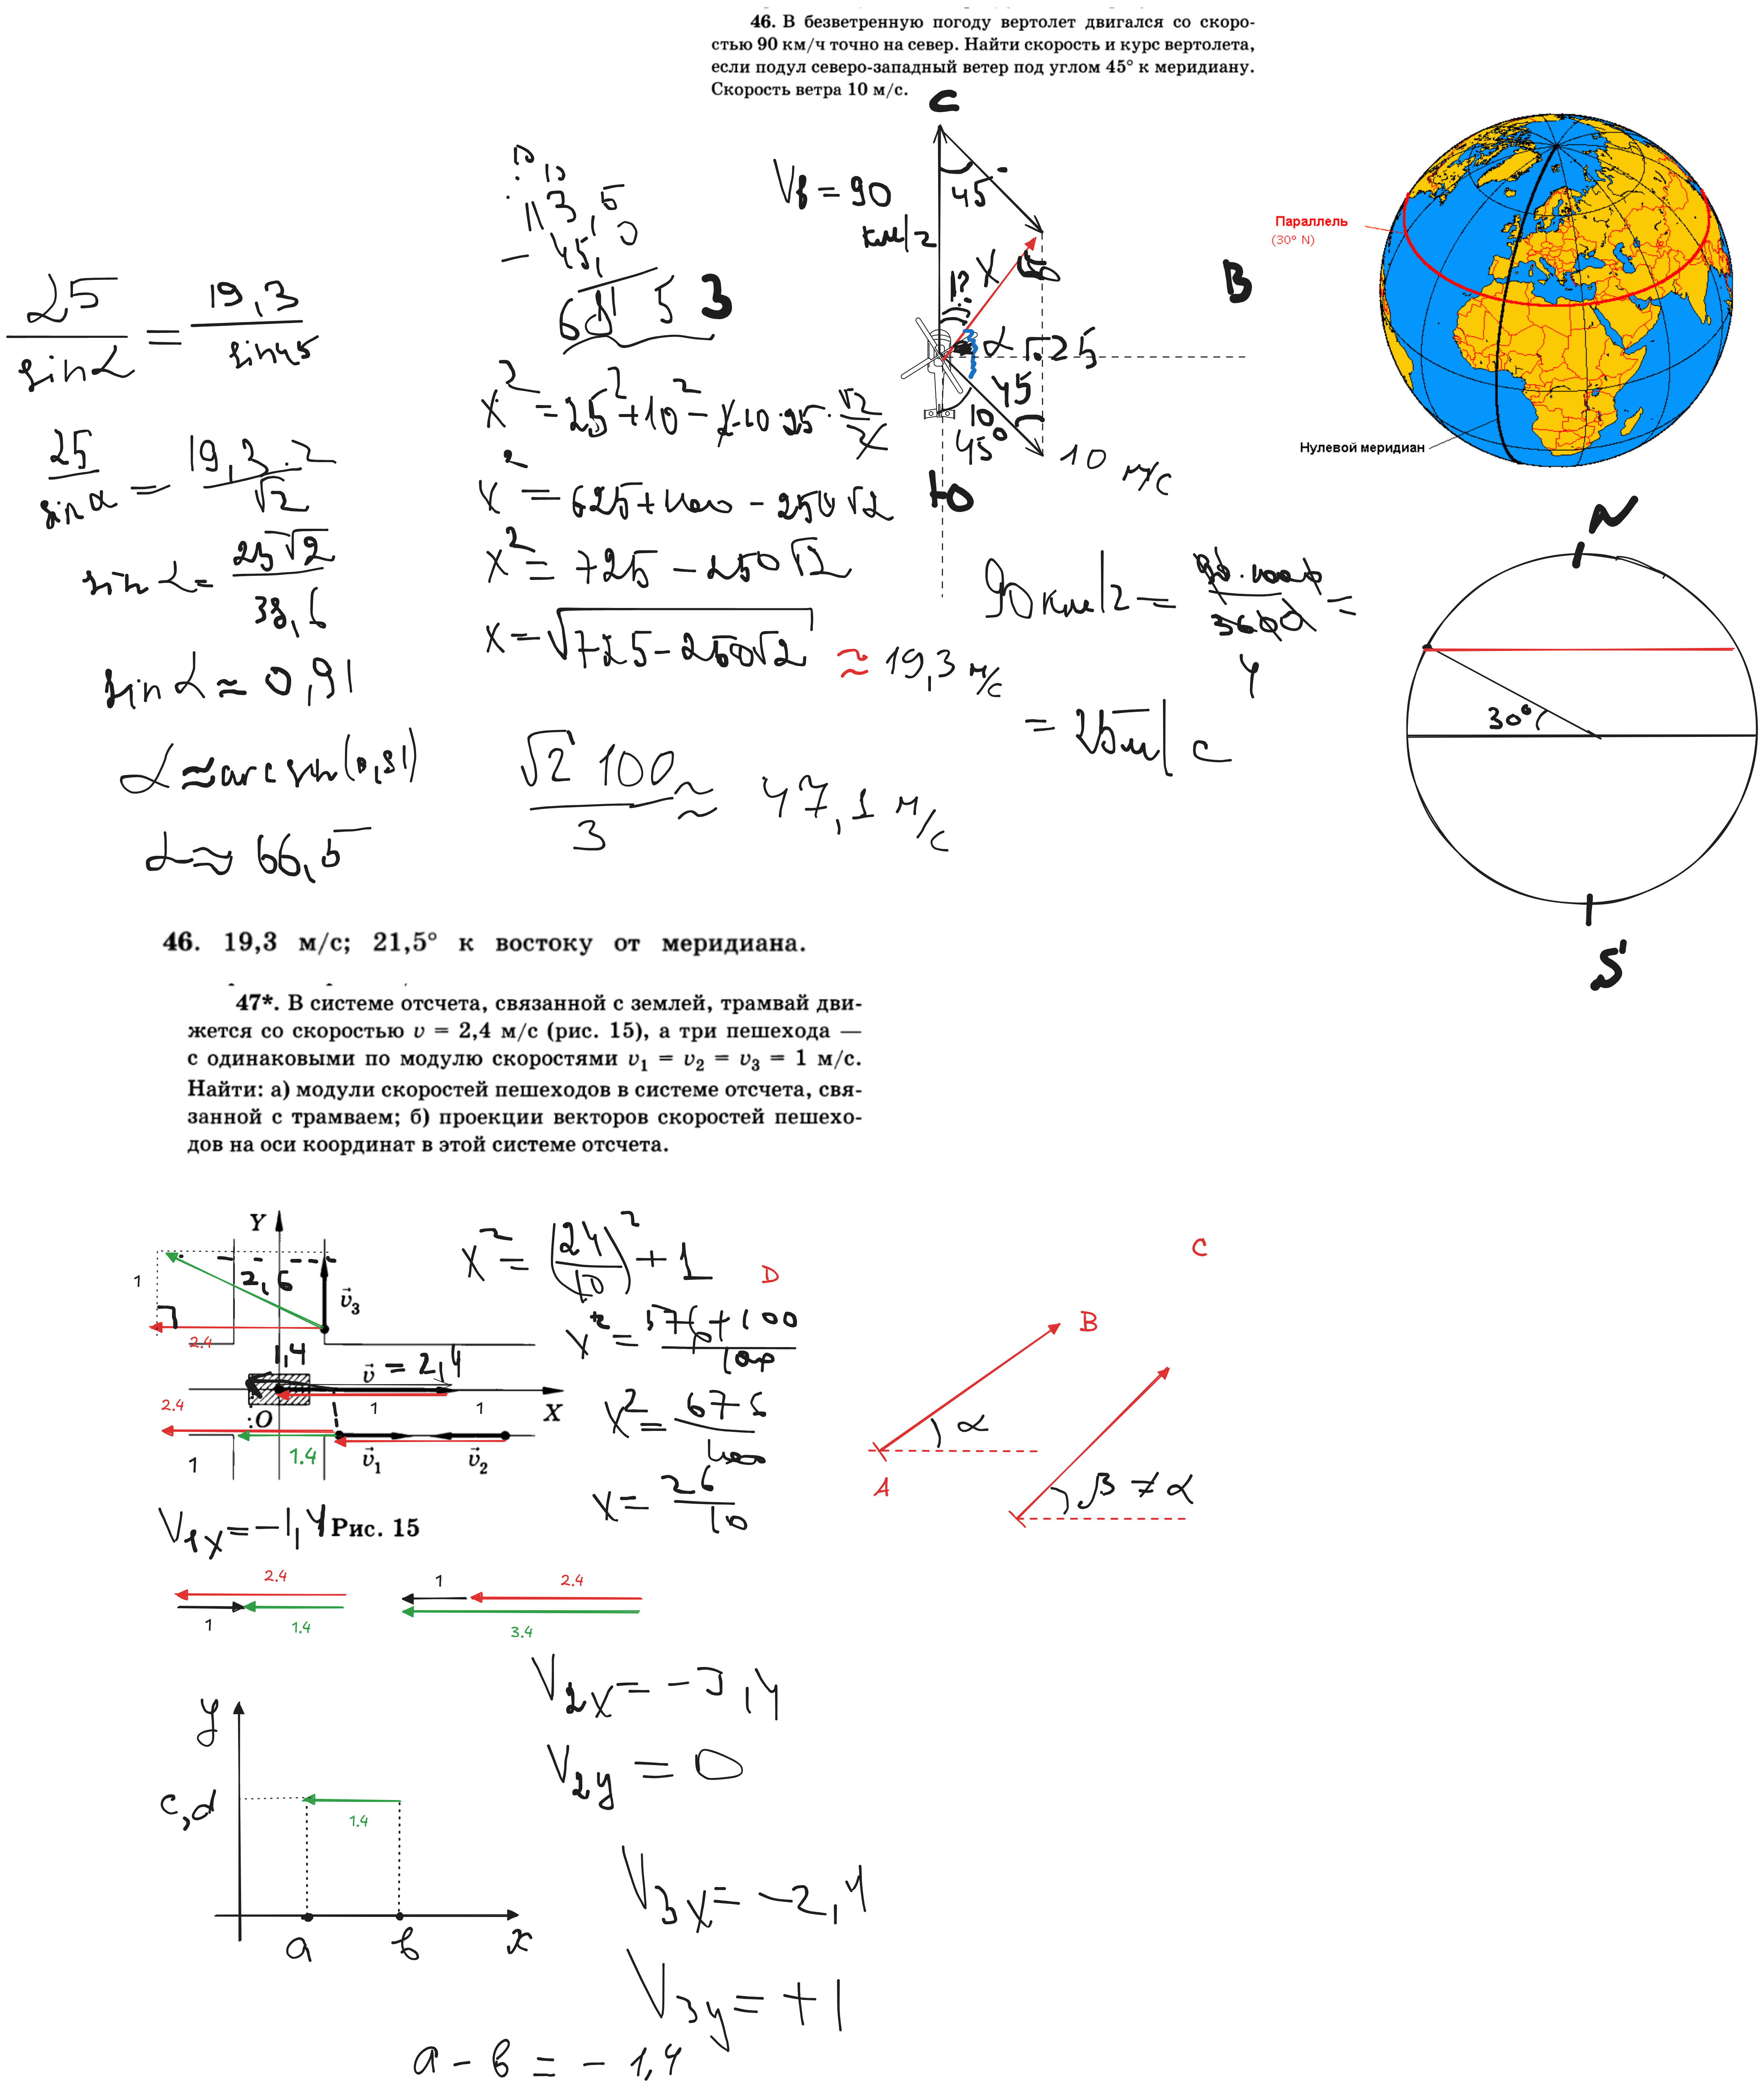 46. В безветренную погоду вертолет двигался со скоро-
стью 90 км/ч точно на север. Найти скорость и курс вертолета,
если подул северо-западный ветер под углом 45° к меридиану.
Скорость ветра 10 м/с.
С
45
Vв = 90
км/ч
X
α
25
45
10
45°
10 м/с
В
Ю
Параллель
(30° N)
Нулевой меридиан
113,5
- 45,0
25/sinα = 19,3/sin45
25/sinα = 19,3·2/√2
sinα = 25√2/38,6
sinα ≈ 0,91
α ≈ arcsin(0,91)
α ≈ 66,5
x² = 25² + 10² - 2·10·25·√2/2
x² = 625 + 100 - 250√2
x² = 725 - 250√2
x = √725-250√2 ≈ 19,3 м/с
√2 100/3 ≈ 47,1 м/с
90 км/ч = 90·1000/3600 =
4
= 25 м/с
N
30°
S
46. 19,3 м/с; 21,5° к востоку от меридиана.
47*. В системе отсчета, связанной с землей, трамвай дви-
жется со скоростью v = 2,4 м/с (рис. 15), а три пешехода —
с одинаковыми по модулю скоростями v₁ = v₂ = v₃ = 1 м/с.
Найти: а) модули скоростей пешеходов в системе отсчета, свя-
занной с трамваем; б) проекции векторов скоростей пешехо-
дов на оси координат в этой системе отсчета.
Y
1
2,6
v₃
2.4
1,4
v = 2,4
2.4
1
1
O
X
1
1.4
v₁
v₂
V₁x = -1,4
Рис. 15
x² = (24/10)² + 1
x² = 576+100/100
x² = 676/100
x = 26/10
D
C
B
α
A
β ≠ α
2.4
1
1.4
1
2.4
3.4
V₂x = -3,4
V₂y = 0
y
c,d
1.4
a
в
x
V₃x = -2,4
V₃y = +1
a - в = - 1,4